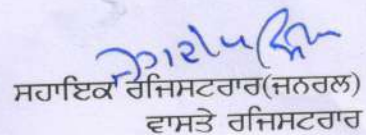 ਸਹਾਇਕ ਰਜਿਸਟਰਾਰ(ਜਨਰਲ)
ਵਾਸਤੇ ਰਜਿਸਟਰਾਰ